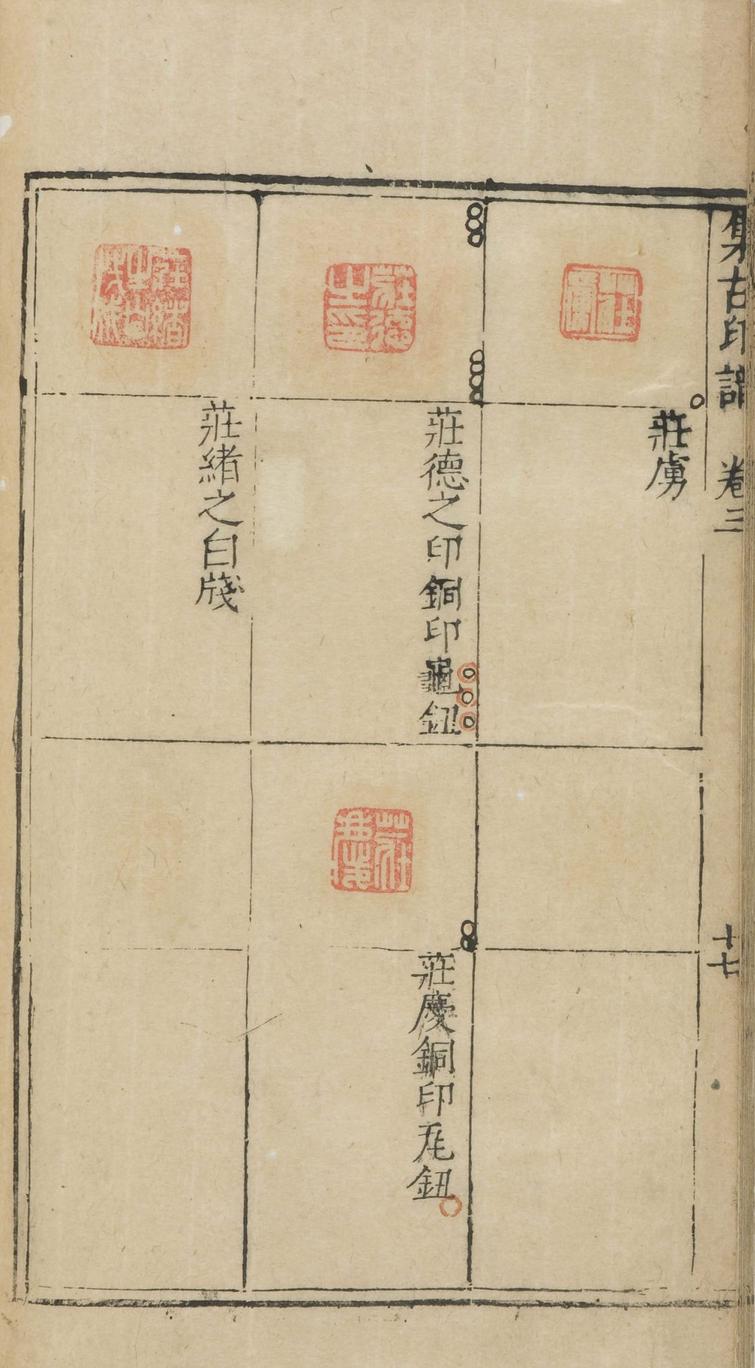 集古印譜 卷三
十七
莊虜
莊德之印銅印龜鈕
莊慶銅印瓦鈕
莊緒之白牋